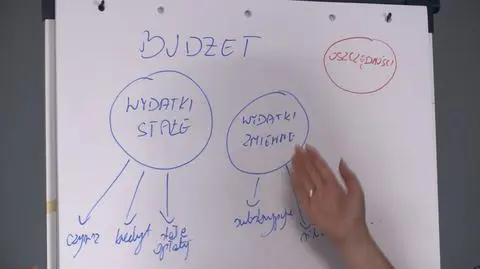 BUDŻET
OSZCZĘDNOŚCI
WYDATKI
STAŁE
WYDATKI
ZMIENNE
czynsz
kredyt
stałe
opłaty
subskrypcje